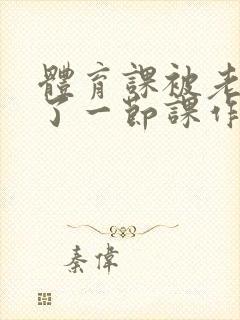 體育課被老
了一節課作
秦偉